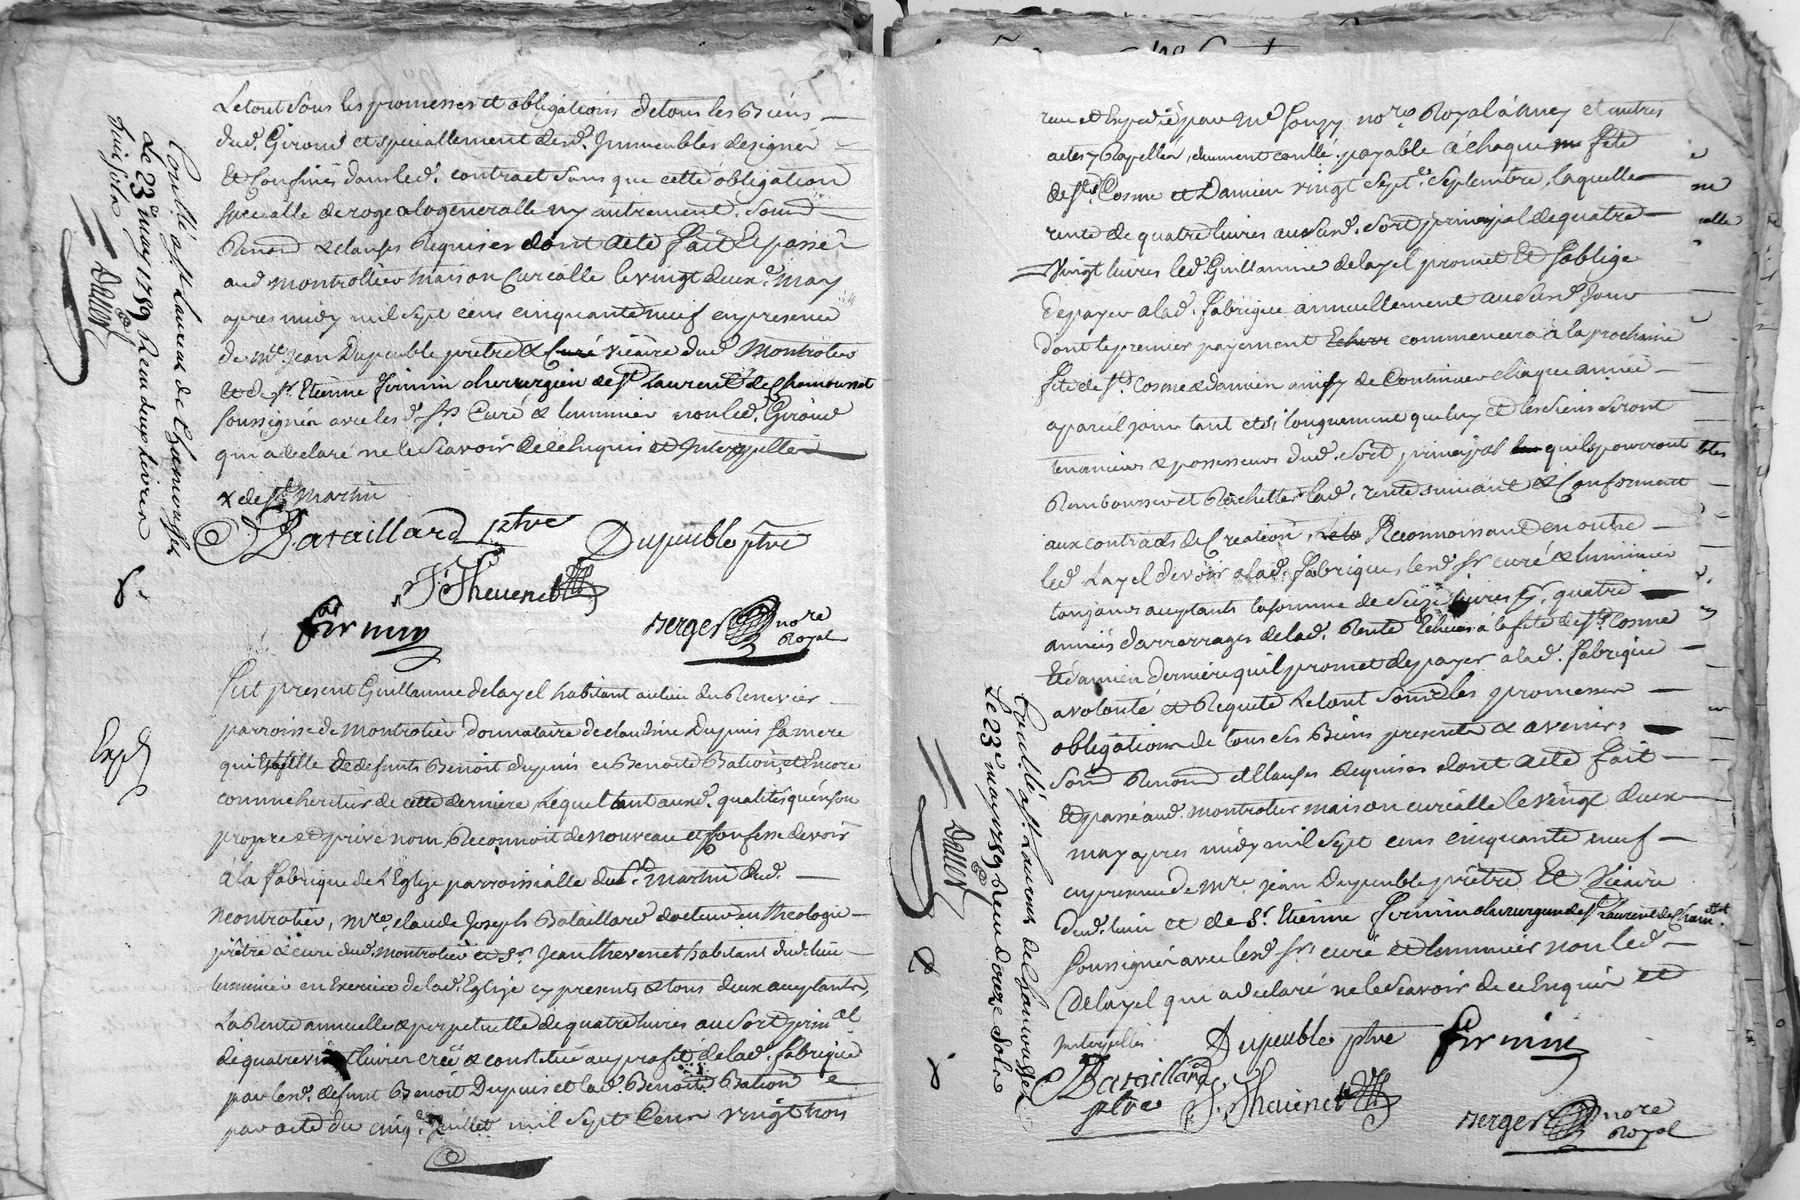 Letout sous les promesses et obligations detous les Biens
dud. Giroud et speciallement desd. Immeubles designer
Et Confinés dansled. contract sans que cette obligation
specialle deroge alageneralle ny autrement. Soud
Renond & clauses Requises dont acte fait Et passé
aud montrottier maison curialle le vingt deuxe. may
apres midy mil sept cens cinquante neuf en presence
de mre. jean Dupeuble pretre & curé vicaire dud Montrotier
et de sr. Etienne firmin chirurgien de st. laurent de chamousset
soussignés avec lesd. srs. Curé & luminier non led. Giroud
qui a declaré ne le scavoir de ce Enquis et Interppellé
x de st. martin
Bataillard ptre Dupeuble ptre
J. Thevenet
firmin Berger nore Royal
Coullé a st. Laurent de Chamousset
Le 23e. may 1759 Recu deux livres
huit sols
Dallet
Fut present Guillaume delayel habitant au lieu du Renevier
parroisse de montrotier, donnataire de claudine Dupuis sa mere
qui Estoit fille de defunts Benoit dupuis et Benoite Bation, et Encore
comme heritier de cette derniere Lequel tant auxd. qualités qu'en son
propre et privé nom, Reconnoit de nouveau et confesse devoir
à la fabrique de L'Eglize parroissialle de st. martin dud.
montrotier, mre. claude Joseph Bataillard docteur en theologie
prêtre & curé dud. montrotier et sr. Jean thevenet habitant dud. lieu
luminier en Exercice de lad. Eglize cy presents & tous deux acceptants,
La Rente annuelle & perpetuelle de quatre livres au sort principal
de quatre vingt livres créé & constitué au profit de lad. fabrique
par lesd. defunt Benoit Dupuis et lad. Benoite Bation
par acte du cinq. Juillet mil sept cens vingt trois
Expd
recu et Expedié par Me Gonzy nore. Royal à Ancy et autres
actes y Rapellés, dument conllé. payable à chaque fete
de sts. Cosme et Damien vingt septe. septembre, laquelle
rente de quatre livres au susd. sort principal de quatre
vingt livres led. Guillaume delayel promet et s'oblige
de payer a lad. fabrique annuellement au susd. jour
dont le premier payement commencera à la prochaine
fete de sts. Cosme & damien ainsy de Continuer chaque année
a pareil jour tant et si longuement que luy et les siens seront
tenanciers & possesseurs dud. sort principal quils pourront
Rembourser et Rachetter lad. rente suivant & Conformement
aux contracts de Creation, Reconnoissant en outre
led. Layel devoir a lad. fabrique, lesd. sr. curé & luminier
toujours acceptants la somme de seize livres pr. quatre
années d'arrerages de lad. Rente Echeus à la fete de sts. Cosme
Et damien derniere qu'il promet de payer a lad. fabrique
a volonté et Requete Letout sous les promesses
obligations de tous ses Biens presents & avenirs
Soud Renond et Clauses Requises dont acte fait
Et passé aud. montrotier maison curialle le vingt deux
may apres midy mil sept cens cinquante neuf
en presence de mre. jean Dupeuble prêtre Et Vicaire
dud. lieu et de sr. Etienne firmin chirurgien de st. laurent de Chamsset.
soussignés avec lesd. srs curé et luminier non led.
delayel qui a declaré ne le scavoir de ce Enquis et
Interpellé Dupeuble ptre firmin
Bataillard ptre J. Thevenet
Berger nore Royal
Coullé a st. Laurent de Chamousset
Le 23e. may 1759 Recu Douze sols
Dallet